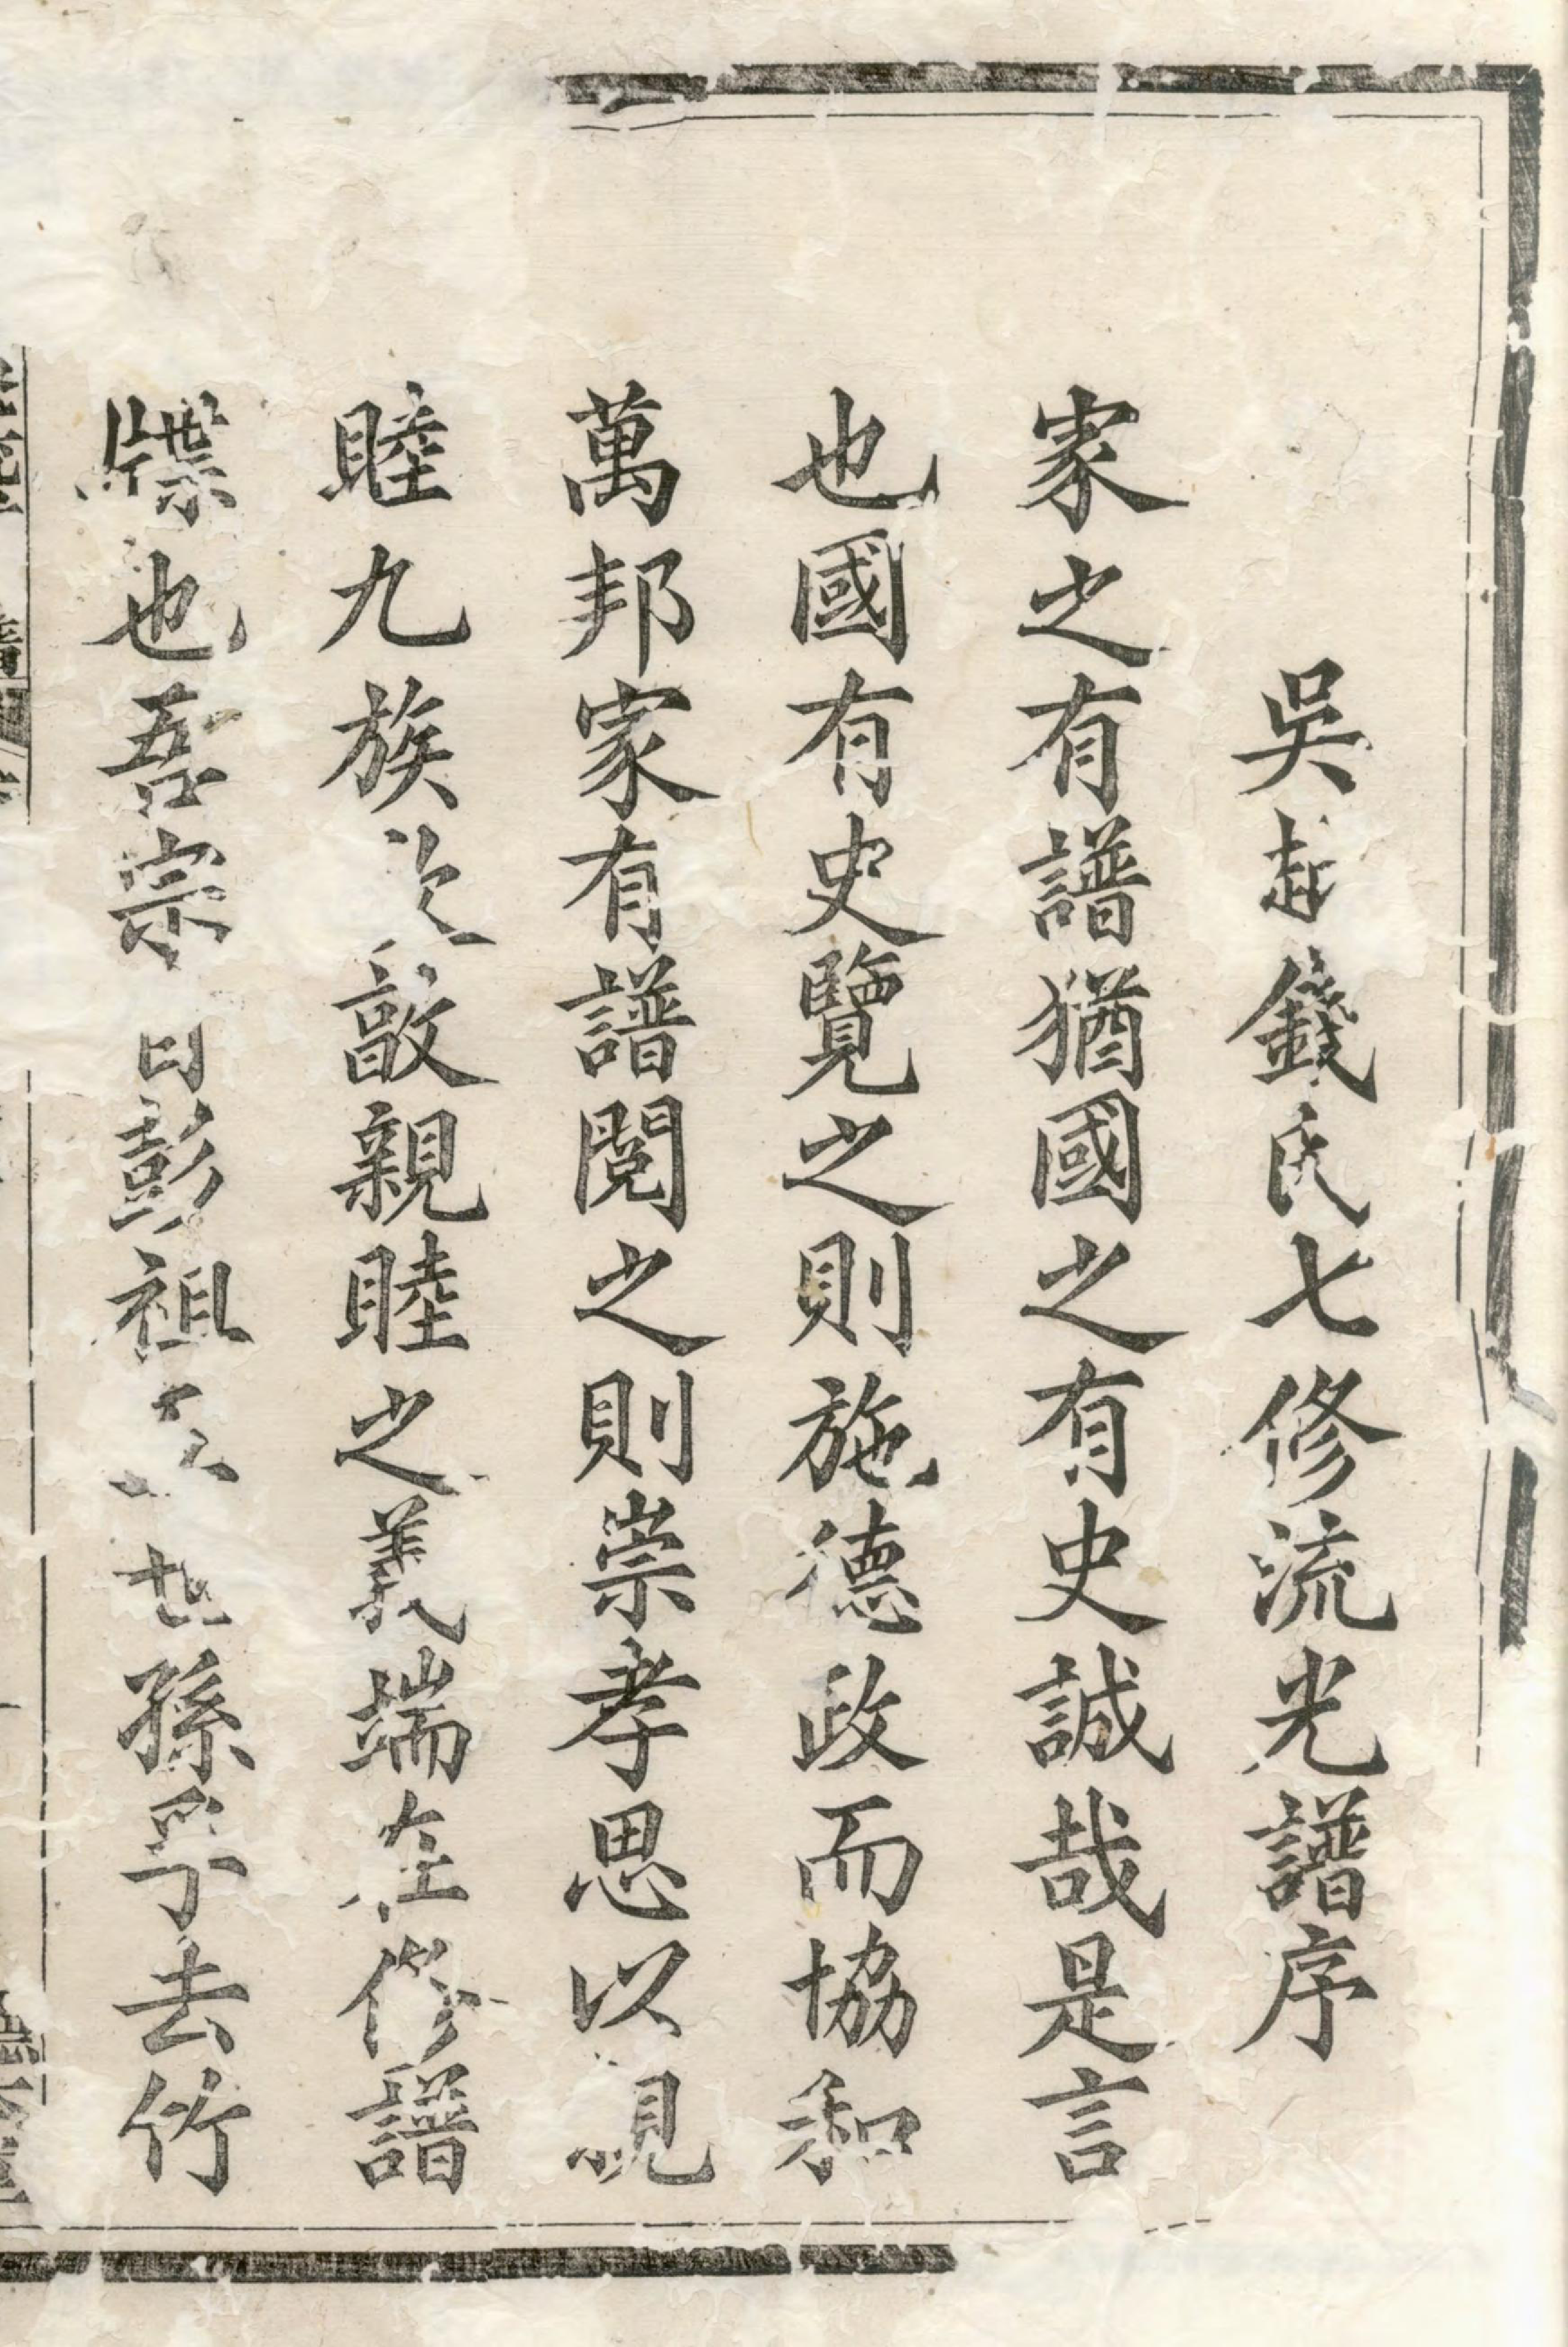 吳越錢氏七修流光譜序
家之有譜猶國之有史誠哉是言
也國有史覽之則施德政而協和
萬邦家有譜閱之則崇孝思以親
睦九族敦親睦之義端在修譜
牒也吾宗自彭祖孫孚去竹